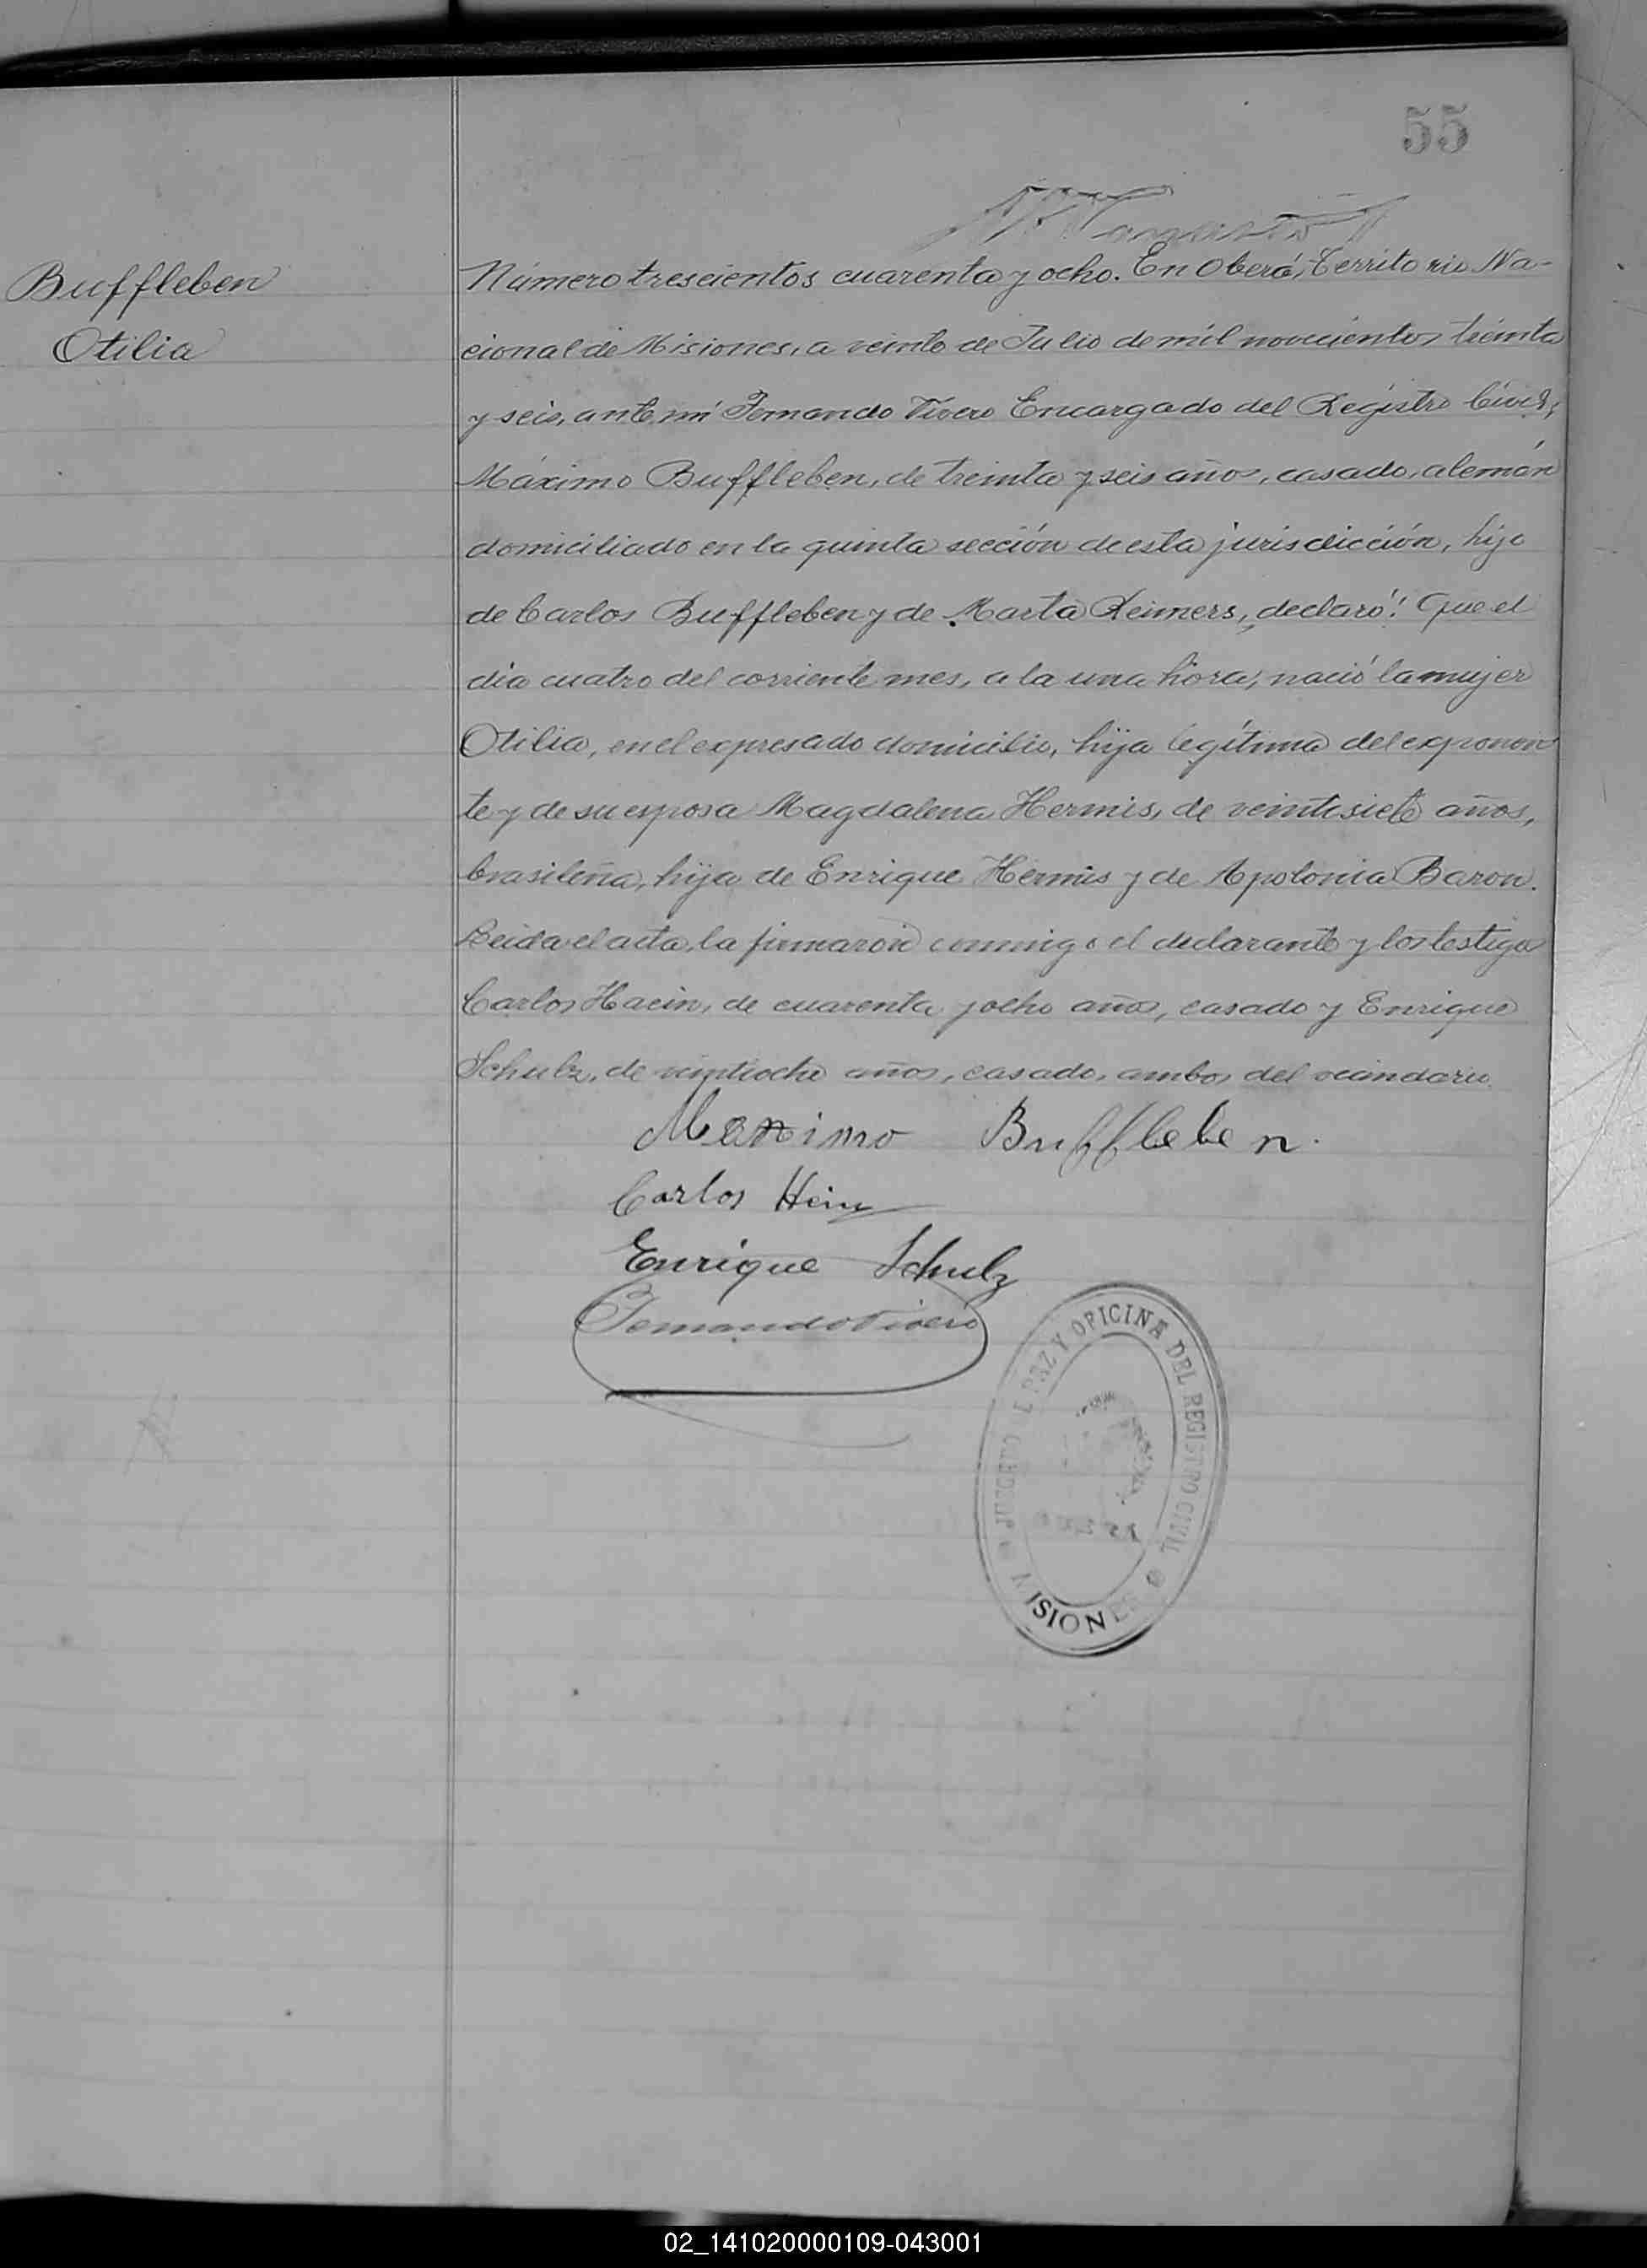 55
Buffleben
Otilia
Número trescientos cuarenta y ocho. En Oberá, Territorio Na-
cional de Misiones, a veinte de Julio de mil novecientos treinta
y seis, ante mí Fernando Vivero Encargado del Registro Civil,
Máximo Buffleben, de treinta y seis años, casado, alemán
domiciliado en la quinta sección de esta jurisdicción, hijo
de Carlos Buffleben y de Marta Reimers, declaró: Que el
día cuatro del corriente mes, a la una hora, nació la mujer
Otilia, en el expresado domicilio, hija legítima del exponen
te y de su esposa Magdalena Hermis, de veintisiete años,
brasileña, hija de Enrique Hermis y de Apolonia Baron.
Leida el acta, la firmaron conmigo el declarante y los testigos
Carlos Hacin, de cuarenta y ocho años, casado y Enrique
Schulz, de veintiocho años, casado, ambos del vecindario
Maximo Buffleben.
Carlos Hein
Enrique Schulz
Fernando Vivero
JUZGADO DE PAZ Y OFICINA DEL REGISTRO CIVIL
MISIONES
02_141020000109-043001